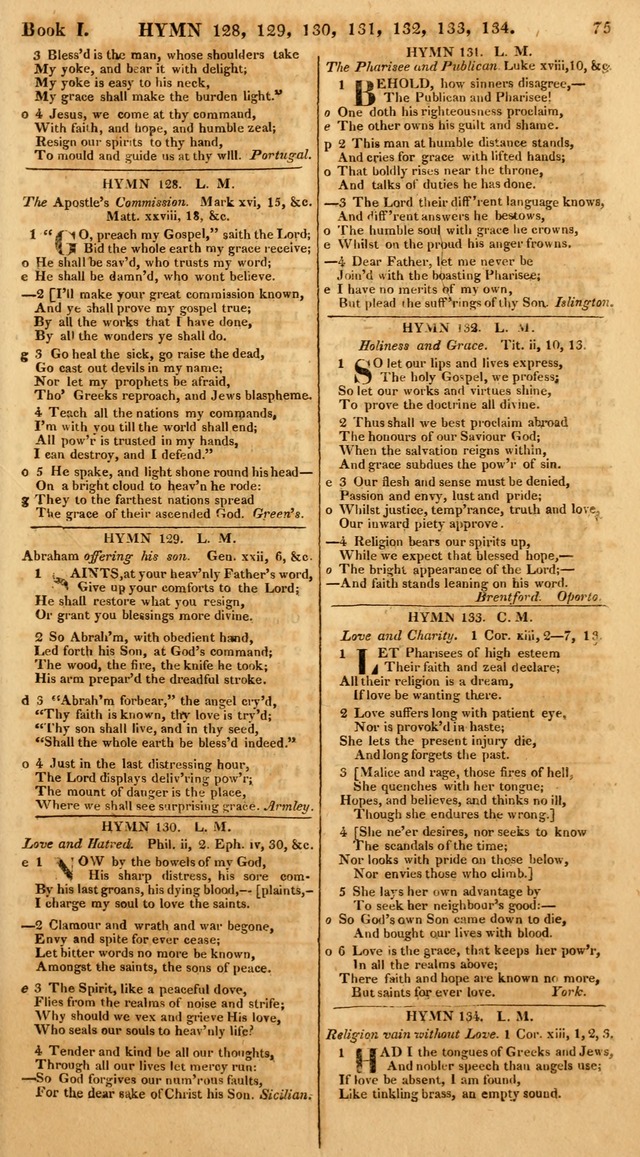 Book I. HYMN 128, 129, 130, 131, 132, 133, 134. 75
3 Bless'd is the man, whose shoulders take
My yoke, and bear it with delight;
My yoke is easy to his neck,
My grace shall make the burden light."
o 4 Jesus, we come at thy command,
With faith, and hope, and humble zeal;
Resign our spirits to thy hand,
To mould and guide us at thy will. Portugal.
HYMN 128. L. M.
The Apostle's Commission. Mark xvi, 15, &c.
Matt. xxviii, 18, &c.
1 "GO, preach my Gospel," saith the Lord;
Bid the whole earth my grace receive;
o He shall be sav'd, who trusts my word;
e He shall be damn'd, who wont believe.
—2 [I'll make your great commission known,
And ye shall prove my gospel true;
By all the works that I have done,
By all the wonders ye shall do.
g 3 Go heal the sick, go raise the dead,
Go cast out devils in my name;
Nor let my prophets be afraid,
Tho' Greeks reproach, and Jews blaspheme.
4 Teach all the nations my commands,
I'm with you till the world shall end;
All pow'r is trusted in my hands,
I can destroy, and I defend."
o 5 He spake, and light shone round his head—
On a bright cloud to heav'n he rode:
g They to the farthest nations spread
The grace of their ascended God. Green's.
HYMN 129. L. M.
Abraham offering his son. Gen. xxii, 6, &c.
1 SAINTS, at your heav'nly Father's word,
Give up your comforts to the Lord;
He shall restore what you resign,
Or grant you blessings more divine.
2 So Abrah'm, with obedient hand,
Led forth his Son, at God's command;
The wood, the fire, the knife he took;
His arm prepar'd the dreadful stroke.
d 3 "Abrah'm forbear," the angel cry'd,
"Thy faith is known, thy love is try'd;
"Thy son shall live, and in thy seed,
"Shall the whole earth be bless'd indeed."
o 4 Just in the last distressing hour,
The Lord displays deliv'ring pow'r;
The mount of danger is the place,
Where we shall see surprising grace. Armley.
HYMN 130. L. M.
Love and Hatred. Phil. ii, 2. Eph. iv, 30, &c.
e 1 NOW by the bowels of my God,
His sharp distress, his sore com-
By his last groans, his dying blood,— [plaints,-
I charge my soul to love the saints.
—2 Clamour and wrath and war begone,
Envy and spite for ever cease;
Let bitter words no more be known,
Amongst the saints, the sons of peace.
e 3 The Spirit, like a peaceful dove,
Flies from the realms of noise and strife;
Why should we vex and grieve His love,
Who seals our souls to heav'nly life?
4 Tender and kind be all our thoughts,
Through all our lives let mercy run:
—So God forgives our num'rous faults,
For the dear sake of Christ his Son. Sicilian.
HYMN 131. L. M.
The Pharisee and Publican. Luke xviii, 10, &c.
1 BEHOLD, how sinners disagree,—
The Publican and Pharisee!
o One doth his righteousness proclaim,
e The other owns his guilt and shame.
p 2 This man at humble distance stands,
And cries for grace with lifted hands;
o That boldly rises near the throne,
And talks of duties he has done.
—3 The Lord their diff'rent language knows,
And diff'rent answers he bestows,
o The humble soul with grace he crowns,
e Whilst on the proud his anger frowns.
—4 Dear Father, let me never be
Join'd with the boasting Pharisee;
e I have no merits of my own,
But plead the suff'rings of thy Son. Islington.
HYMN 132. L. M.
Holiness and Grace. Tit. ii, 10, 13.
1 SO let our lips and lives express,
The holy Gospel, we profess;
So let our works and virtues shine,
To prove the doctrine all divine.
2 Thus shall we best proclaim abroad
The honours of our Saviour God;
When the salvation reigns within,
And grace subdues the pow'r of sin.
e 3 Our flesh and sense must be denied,
Passion and envy, lust and pride;
o Whilst justice, temp'rance, truth and love,
Our inward piety approve.
—4 Religion bears our spirits up,
While we expect that blessed hope,—
o The bright appearance of the Lord;—
—And faith stands leaning on his word.
Brentford. Oporto.
HYMN 133. C. M.
Love and Charity. 1 Cor. xiii, 2—7, 13.
1 LET Pharisees of high esteem
Their faith and zeal declare;
All their religion is a dream,
If love be wanting there.
2 Love suffers long with patient eye,
Nor is provok'd in haste;
She lets the present injury die,
And long forgets the past.
3 [Malice and rage, those fires of hell,
She quenches with her tongue;
Hopes, and believes, and thinks no ill,
Though she endures the wrong.]
4 [She ne'er desires, nor seeks to know
The scandals of the time;
Nor looks with pride on those below,
Nor envies those who climb.]
5 She lays her own advantage by
To seek her neighbour's good:—
o So God's own Son came down to die,
And bought our lives with blood.
o 6 Love is the grace, that keeps her pow'r,
In all the realms above;
There faith and hope are known no more,
But saints for ever love. York.
HYMN 134. L. M.
Religion vain without Love. 1 Cor. xiii, 1, 2, 3.
1 HAD I the tongues of Greeks and Jews,
And nobler speech than angels use;
If love be absent, I am found,
Like tinkling brass, an empty sound.